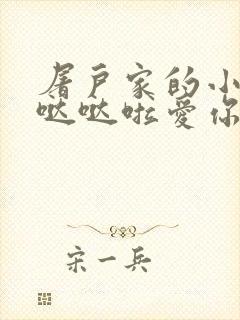 屠户家的小
哒哒啦爱你
宋一兵